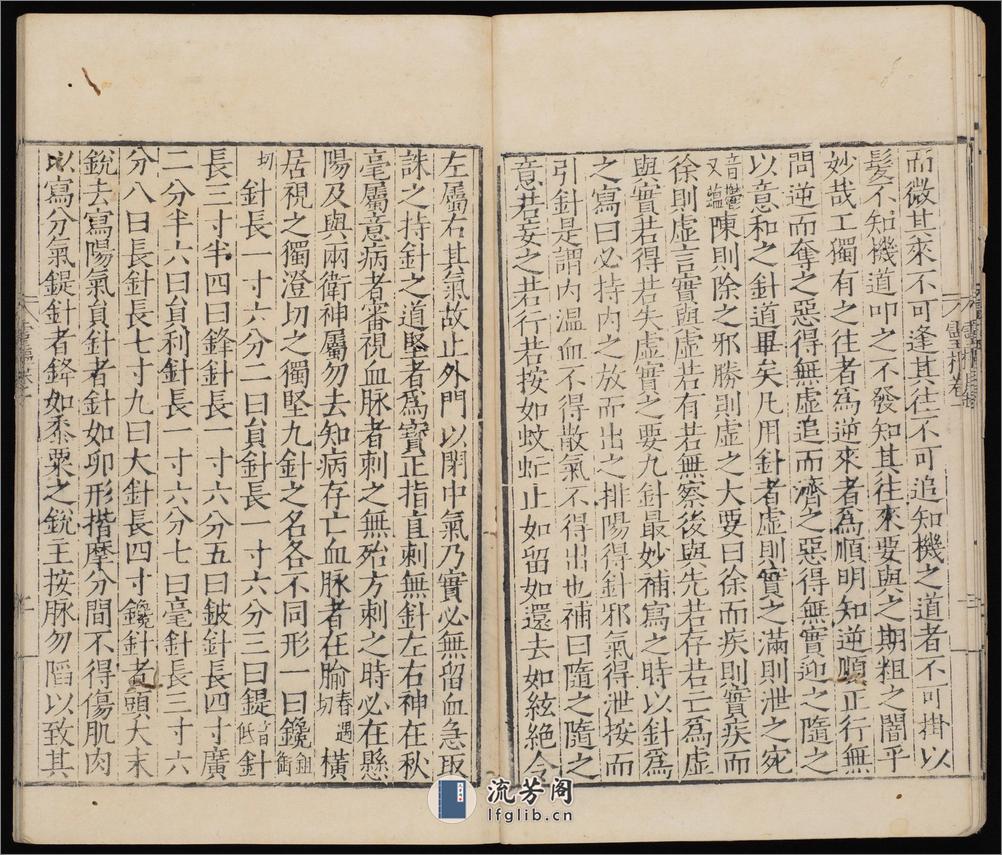 而微其來不可逢其往不可追知機之道者不可掛以
髮不知機道叩之不發知其往來要與之期粗之闇乎
妙哉工獨有之往者為逆來者為順明知逆順正行無
問逆而奪之惡得無虛追而濟之惡得無實迎之隨之
以意和之針道畢矣凡用針者虛則實之滿則泄之宛
音鬱又蘊陳則除之邪勝則虛之大要曰徐而疾則實疾而
徐則虛言實與虛若有若無察後與先若存若亡為虛
與實若得若失虛實之要九針最妙補寫之時以針為
之寫曰必持內之放而出之排陽得針邪氣得泄按而
引針是謂內溫血不得散氣不得出也補曰隨之隨之
意若妄之若行若按如蚊虻止如留如還去如絃絕令
左屬右其氣故止外門以閉中氣乃實必無留血急取
誅之持針之道堅者為寶正指直刺無針左右神在秋
毫屬意病者審視血脉者刺之無殆方刺之時必在懸
陽及與兩衛神屬勿去知病存亡血脉者在腧春遇切橫
居視之獨澄切之獨堅九針之名各不同形一曰鑱鉏銜
切針長一寸六分二曰員針長一寸六分三曰鍉音低針
長三寸半四曰鋒針長一寸六分五曰鈹針長四寸廣
二分半六曰員利針長一寸六分七曰毫針長三寸六
分八曰長針長七寸九曰大針長四寸鑱針者頭大末
銳去寫陽氣員針者針如卵形揩摩分間不得傷肌肉
以寫分氣鍉針者鋒如黍粟之銳主按脉勿陷以致其
靈樞卷一
流芳阁
lfglib.cn